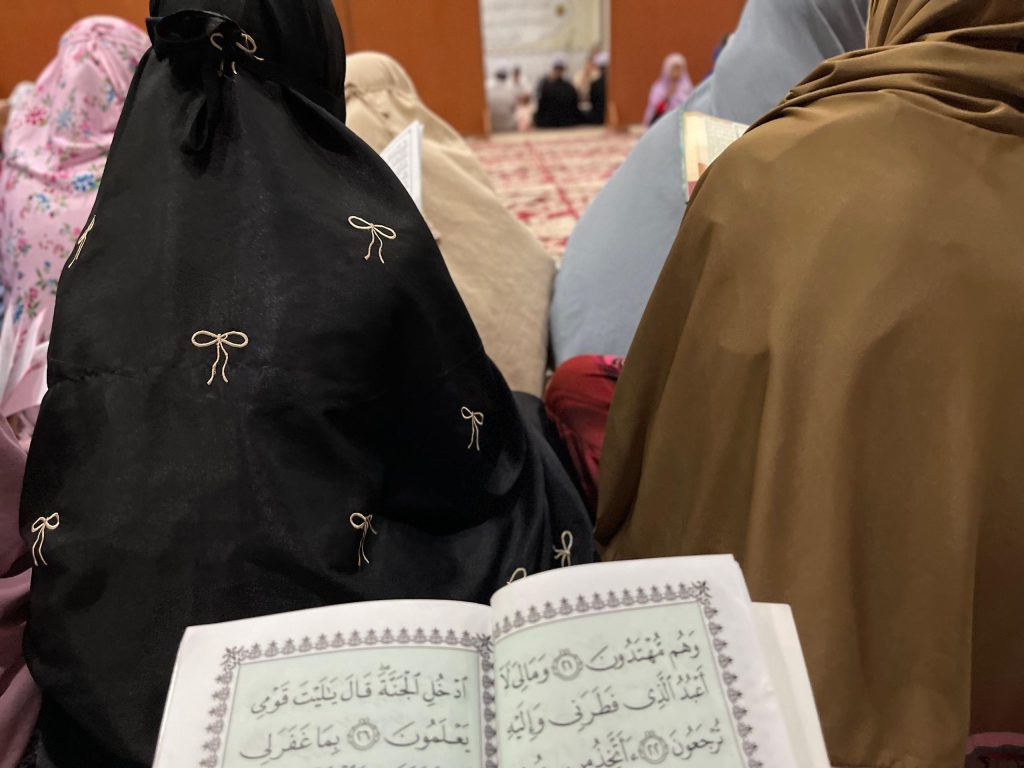 وَهُم مُّهْتَدُونَ ٢١ وَمَالِيَ لَا
أَعْبُدُ ٱلَّذِى فَطَرَنِى وَإِلَيْهِ
تُرْجَعُونَ ٢٢ ءَأَتَّخِذُ مِن
ٱدْخُلِ ٱلْجَنَّةَ قَالَ يَٰلَيْتَ قَوْمِى
يَعْلَمُونَ ٢٦ بِمَا غَفَرَ لِى